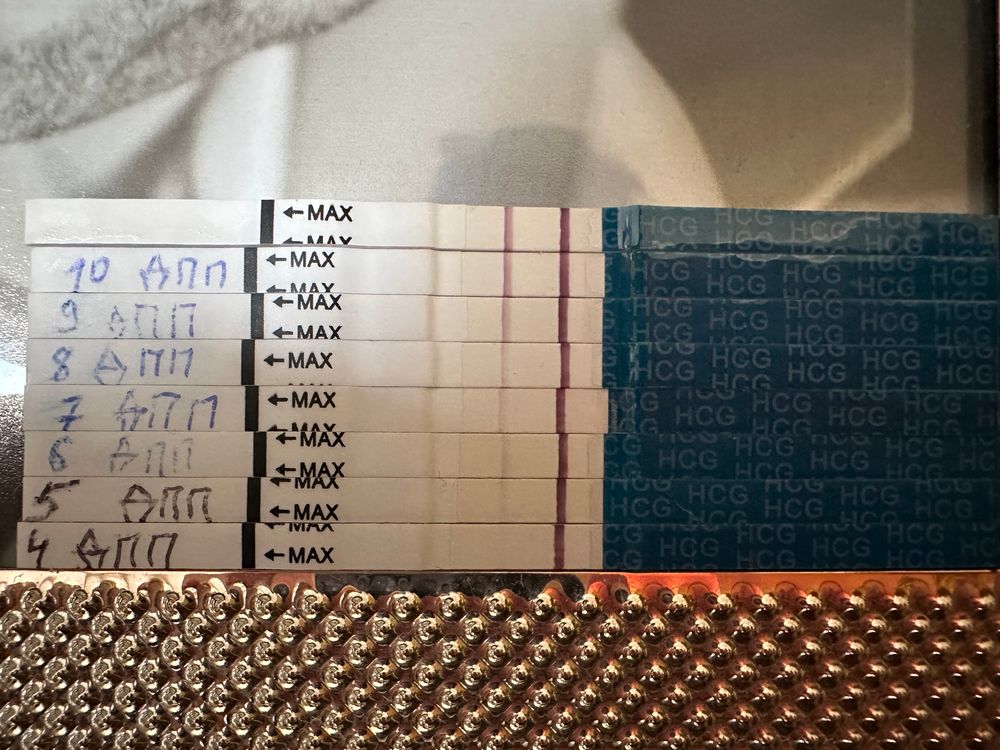 ←MAX HCG HCG HCG HCG
←MAX HCG HCG HCG
10 ДПП ←MAX HCG HCG HCG HCG
←MAX
9 ДПП ←MAX HCG HCG HCG HCG
←MAX HCG HCG HCG
8 ДПП ←MAX HCG HCG HCG HCG
7 ДПП ←MAX HCG HCG HCG HCG
←MAX HCG HCG HCG
6 ДПП ←MAX HCG HCG HCG HCG
←MAX
5 ДПП ←MAX HCG HCG HCG HCG
←MAX HCG HCG HCG
4 ДПП ←MAX HCG HCG HCG HCG